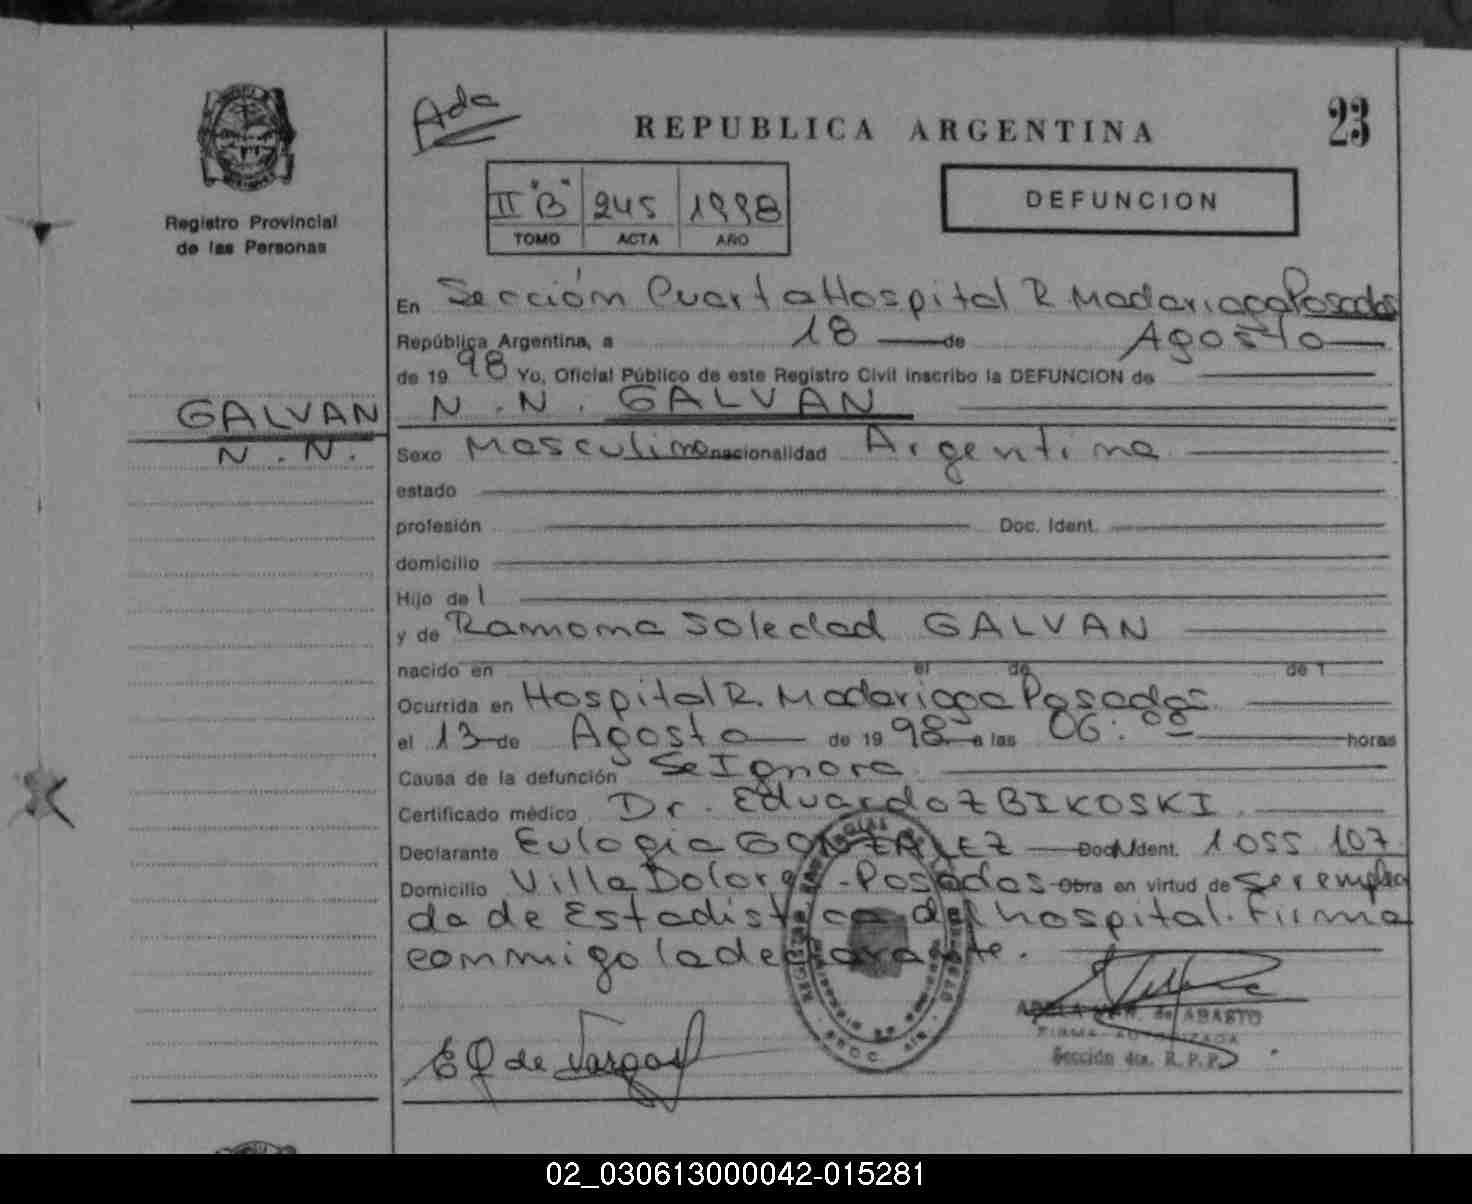 Registro Provincial
de las Personas
GALVAN
N . N .
Ada
REPUBLICA ARGENTINA
23
II "B" 245 1998
TOMO ACTA AÑO
DEFUNCION
En Sección Cuarta Hospital R. Madariaga Posadas
República Argentina, a 18 de Agosto
de 1998 Yo, Oficial Público de este Registro Civil inscribo la DEFUNCION de
N . N . GALVAN
Sexo Masculino nacionalidad Argentina
estado
profesión Doc. Ident.
domicilio
Hijo de
y de Ramona Soledad GALVAN
nacido en el de de 1
Ocurrida en Hospital R. Madariaga Posadas.
el 13 de Agosto de 1998 a las 06:00 horas
Causa de la defunción Se Ignora
Certificado médico Dr. Eduardo ZBIKOSKI
Declarante Eulogia GONZALEZ Doc. Ident. 1055.107.
Domicilio Villa Dolores - Posadas Obra en virtud de ser emplea
da de Estadistica del hospital. Firma
conmigo la declarante.
de Vargas
de ABASTO
FIRMA AUTORIZADA
Sección 4ta. R. P. P.
02_030613000042-015281